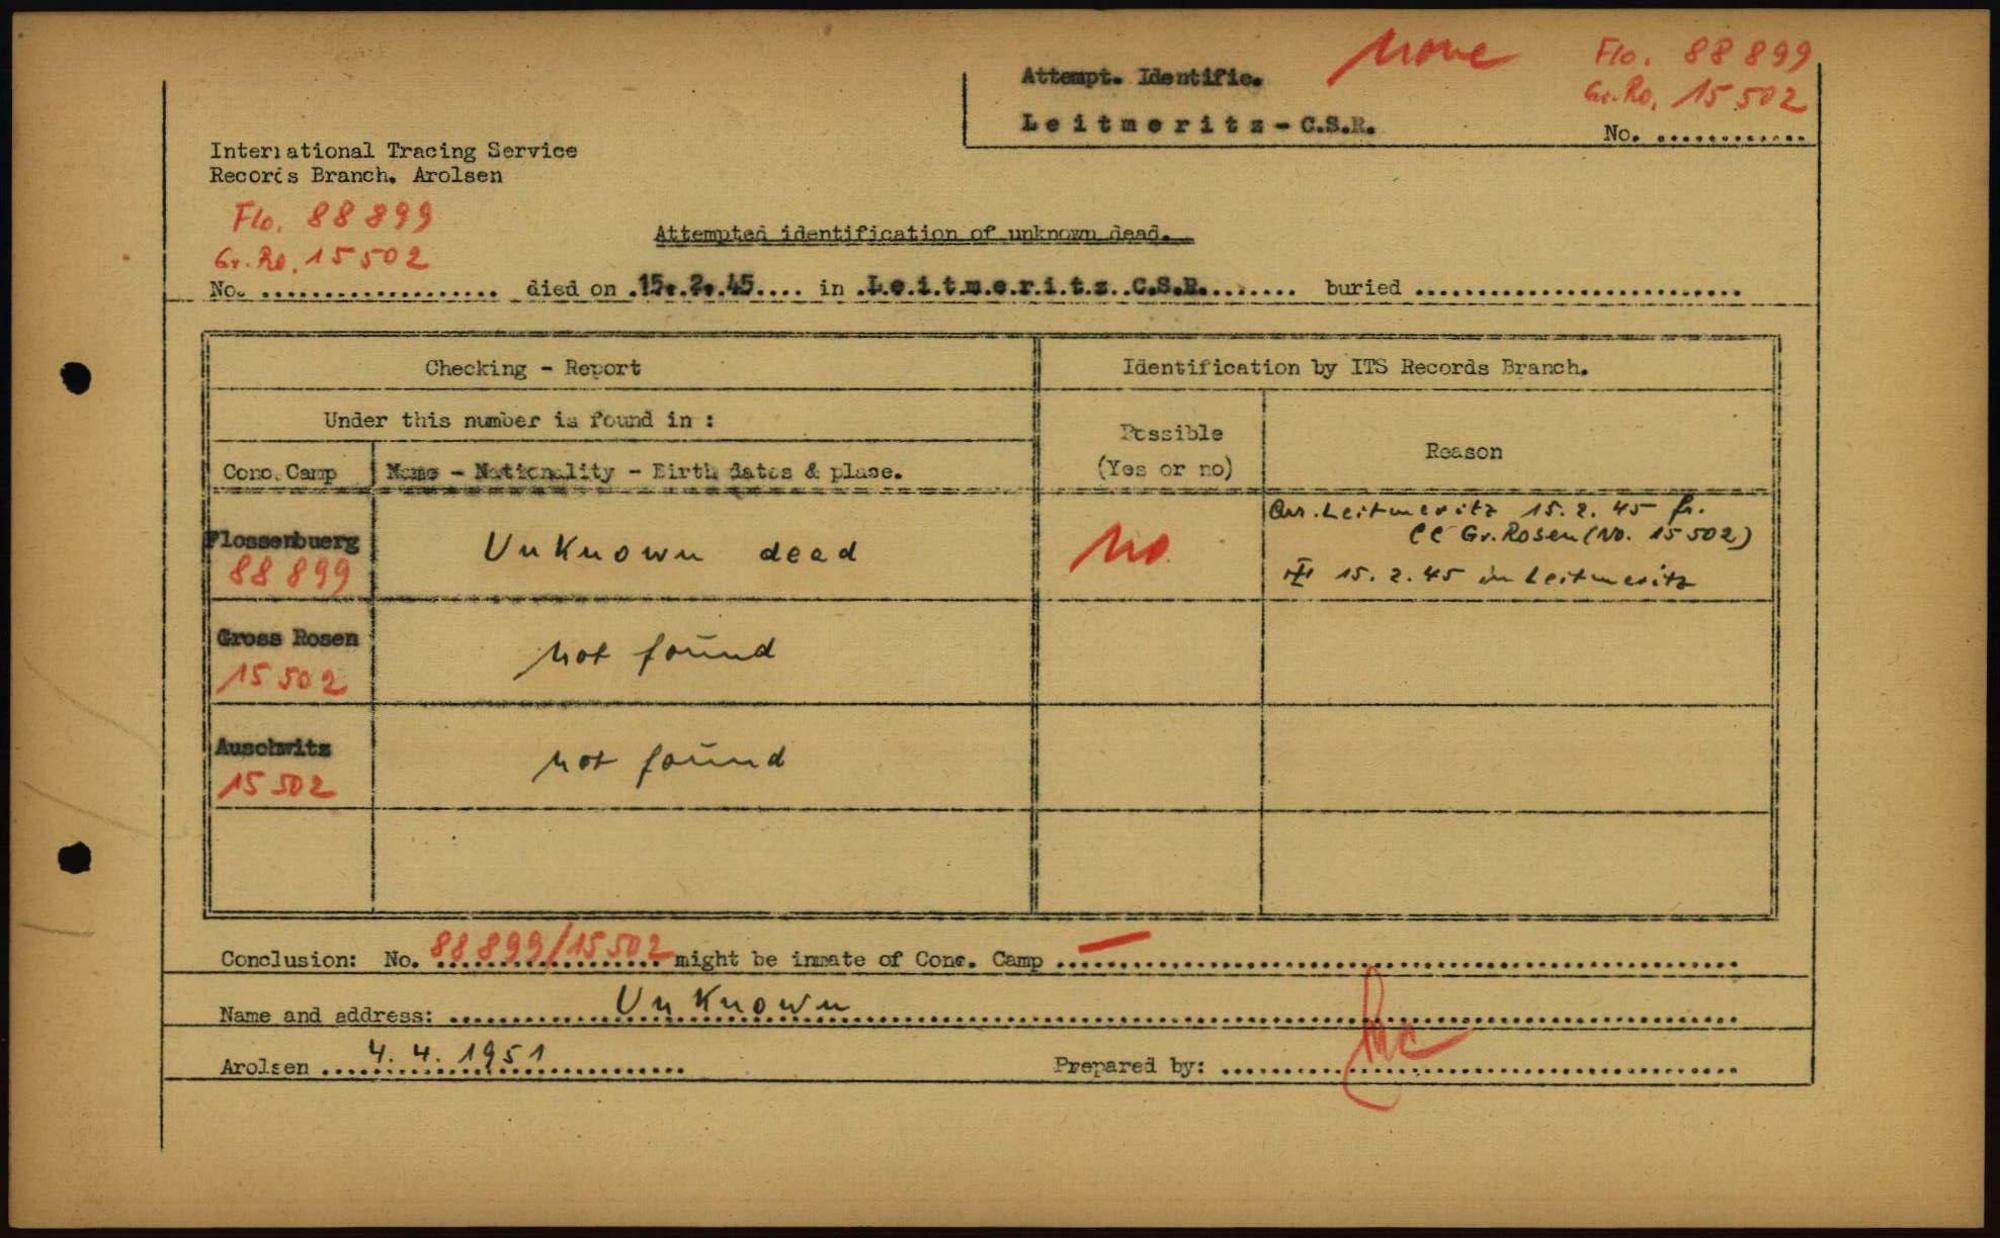 Attempt. Identific. none Flo. 88 899
Gr.Ro. 15 502
Leitmeritz-C.S.R. No. ............
International Tracing Service
Records Branch. Arolsen
Flo. 88 899
Gr.Ro. 15 502
Attempted identification of unknown dead.
No. ................... died on .15.2.45.... in .L.e.i.t.m.e.r.i.t.z..C.S.R........ buried ..........................
Checking - Report Identification by ITS Records Branch.
Under this number is found in :
Possible
(Yes or no)
Reason
Conc.Camp Name - Nationality - Birth dates & place.
Flossenbuerg
88 899
Unknown dead
no
Arr. Leitmeritz 15.2.45 fr.
CC Gr.Rosen (No. 15 502)
15.2.45 in Leitmeritz
Gross Rosen
15 502
not found
Auschwitz
15 502
not found
Conclusion: No. 88 899/15 502 might be inmate of Conc. Camp – ..........................
Name and address: Unknown
Arolsen 4.4.1951 Prepared by: ..........................